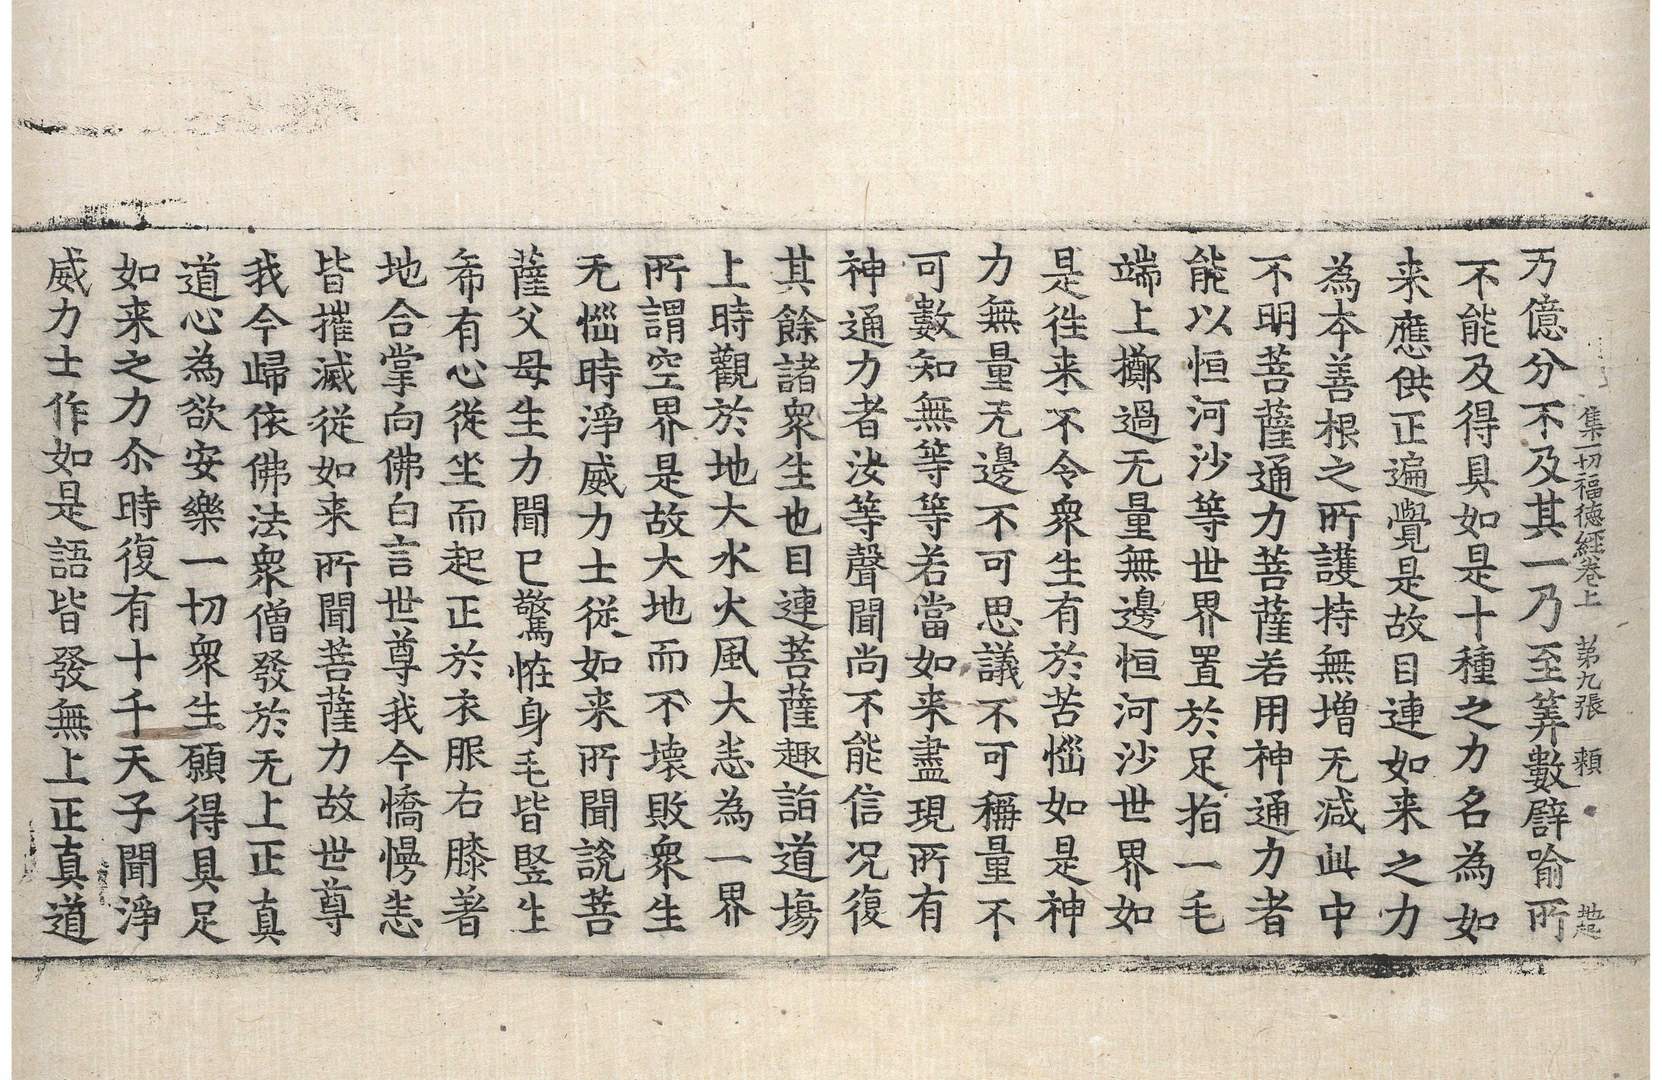 集一切福德經卷上 第九張 賴
万億分不及其一乃至筭數譬喻所
不能及得具如是十種之力名為如
来應供正遍覺是故目連如来之力
為夲善根之所護持無增无減此中
不明菩薩通力菩薩若用神通力者
能以恒河沙等世界置於足指一毛
端上擲過无量無邊恒河沙世界如
是徃来不令衆生有於苦惱如是神
力無量无邊不可思議不可稱量不
可數知無等等若當如来盡現所有
神通力者汝等聲聞尚不能信况復
其餘諸衆生也目連菩薩趣詣道塲
上時觀於地大水火風大恚為一界
所謂空界是故大地而不壊敗衆生
无惱時淨威力士従如来所聞說菩
薩父母生力聞已驚恠身毛皆竪生
希有心従坐而起正於衣服右膝著
地合掌向佛白言世尊我今憍慢恚
皆摧滅従如来所聞菩薩力故世尊
我今歸依佛法衆僧發於无上正真
道心為欲安樂一切衆生願得具足
如来之力尒時復有十千天子聞淨
威力士作如是語皆發無上正真道